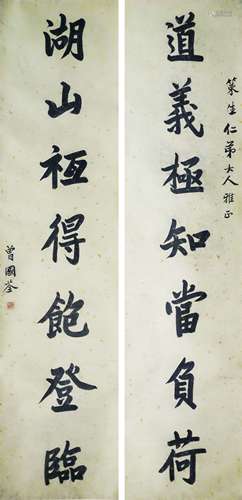 策生仁弟大人雅正
道義極知當負荷
湖山祗得飽登臨
曾國荃